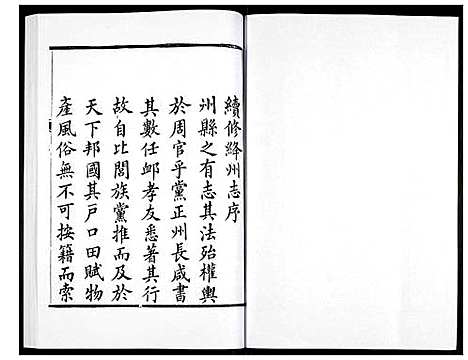 續修絳州志序
州縣之有志其法殆權輿
於周官乎黨正州長咸書
其數任卹孝友悉著其行
故自比閭族黨推而及於
天下邦國其戶口田賦物
產風俗無不可按籍而索